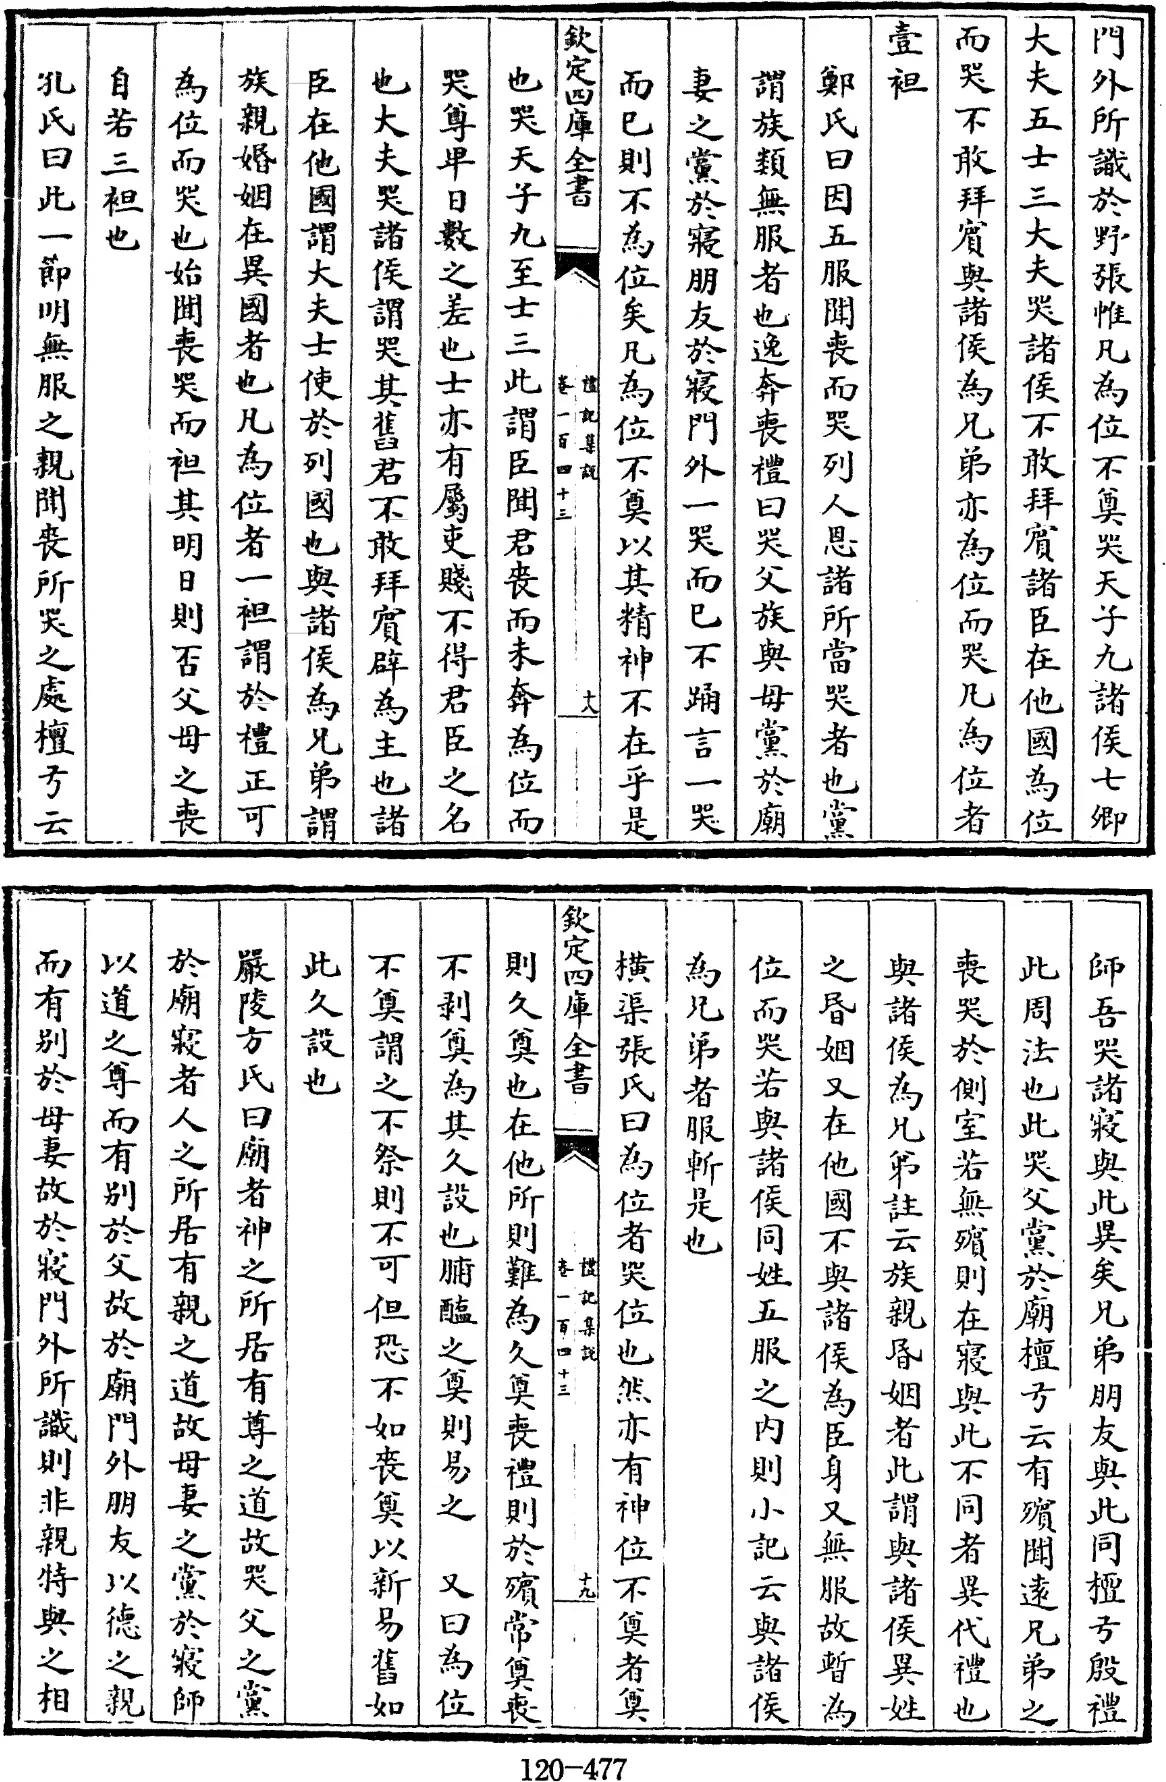 門外所識於野張帷凡為位不奠哭天子九諸侯七卿
大夫五士三大夫哭諸侯不敢拜賓諸臣在他國為位
而哭不敢拜賓與諸侯為兄弟亦為位而哭凡為位者
壹袒
鄭氏曰因五服聞喪而哭列人恩諸所當哭者也黨
謂族類無服者也逸奔喪禮曰哭父族與母黨於廟
妻之黨於寢朋友於寢門外一哭而已不踊言一哭
而已則不為位矣凡為位不奠以其精神不在乎是
欽定四庫全書
禮記集說
卷一百四十三
十八
也哭天子九至士三此謂臣聞君喪而未奔為位而
哭尊卑日數之差也士亦有屬吏賤不得君臣之名
也大夫哭諸侯謂哭其舊君不敢拜賓辟為主也諸
臣在他國謂大夫士使於列國也與諸侯為兄弟謂
族親婚姻在異國者也凡為位者一袒謂於禮正可
為位而哭也始聞喪哭而袒其明日則否父母之喪
自若三袒也
孔氏曰此一節明無服之親聞喪所哭之處檀弓云
師吾哭諸寢與此異矣兄弟朋友與此同檀弓殷禮
此周法也此哭父黨於廟檀弓云有殯聞遠兄弟之
喪哭於側室若無殯則在寢與此不同者異代禮也
與諸侯為兄弟註云族親昏姻者此謂與諸侯異姓
之昏姻又在他國不與諸侯為臣身又無服故暫為
位而哭若與諸侯同姓五服之內則小記云與諸侯
為兄弟者服斬是也
橫渠張氏曰為位者哭位也然亦有神位不奠者奠
欽定四庫全書
禮記集說
卷一百四十三
十九
則久奠也在他所則難為久奠喪禮則於殯常奠喪
不剝奠為其久設也脯醢之奠則易之　又曰為位
不奠謂之不祭則不可但恐不如喪奠以新易舊如
此久設也
嚴陵方氏曰廟者神之所居有尊之道故哭父之黨
於廟寢者人之所居有親之道故母妻之黨於寢師
以道之尊而有別於父故於廟門外朋友以德之親
而有別於母妻故於寢門外所識則非親特與之相
120-477